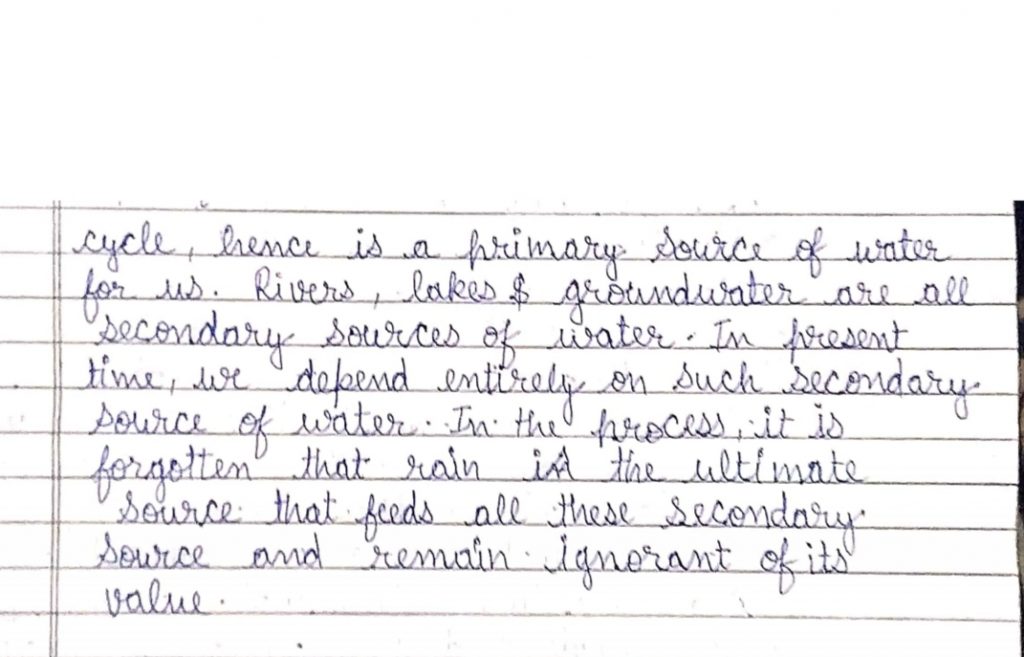 cycle, hence is a primary source of water
for us. Rivers, lakes & groundwater are all
secondary sources of water. In present
time, we depend entirely on such secondary
source of water. In the process, it is
forgotten that rain is the ultimate
source that feeds all these secondary
source and remain ignorant of its
value.